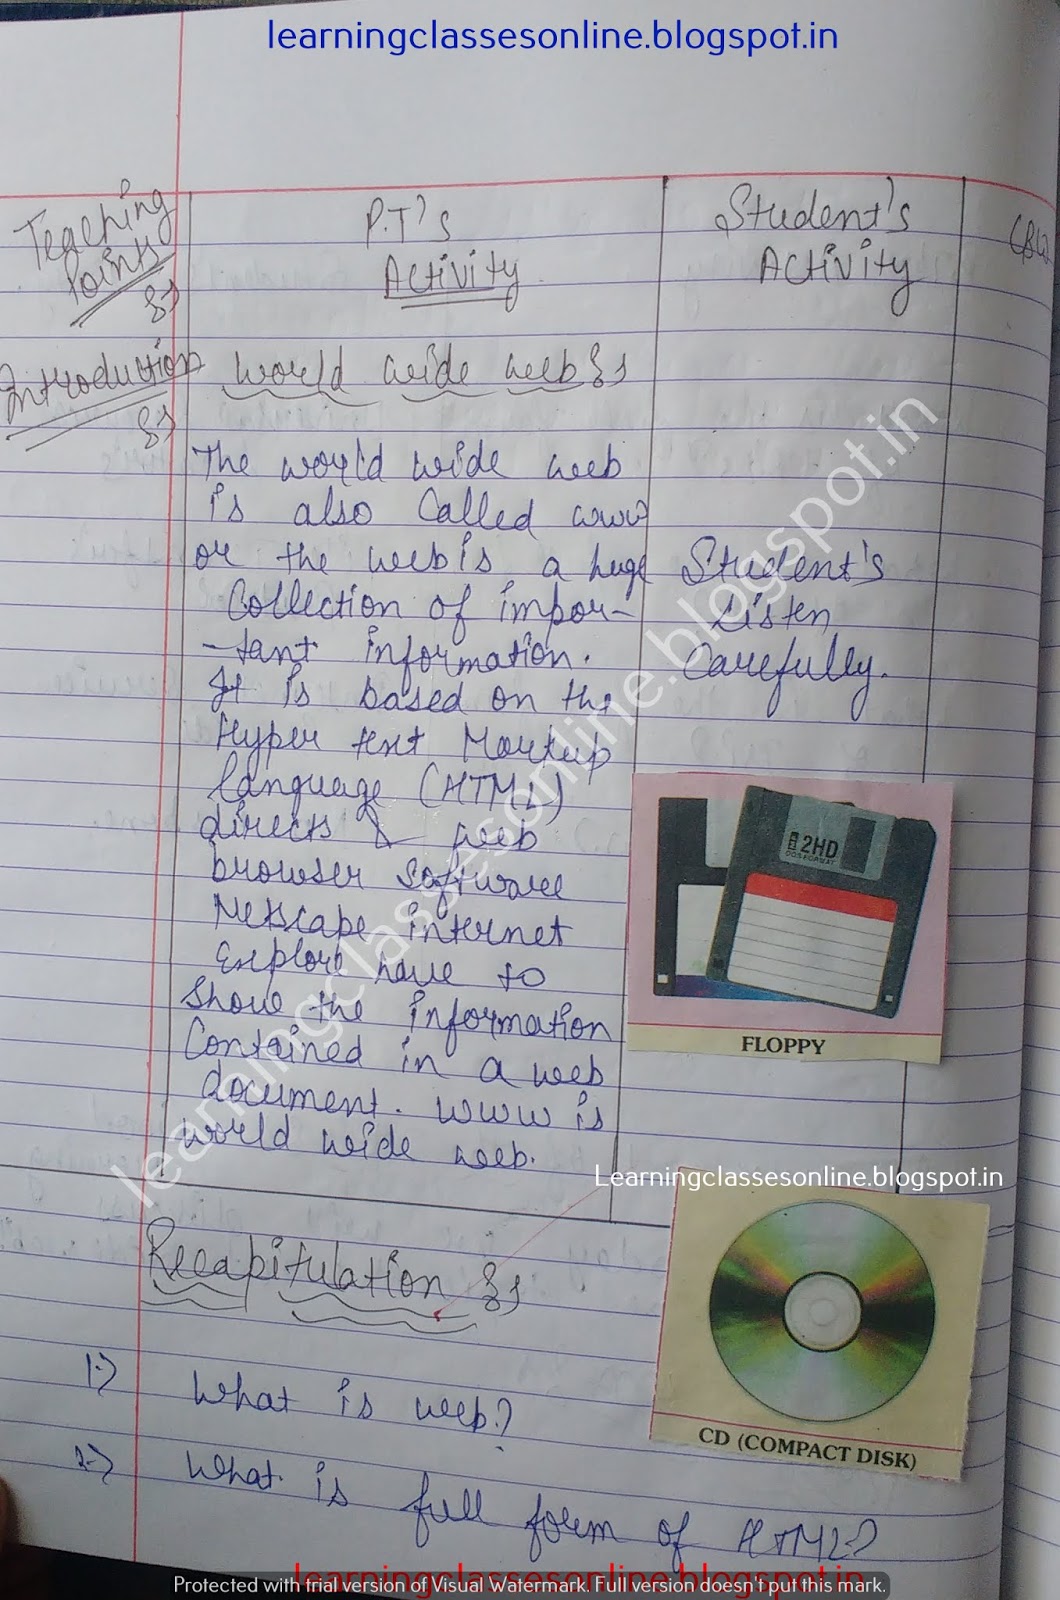 learningclassesonline.blogspot.in
Teaching
Points
P.T's
Activity
Student's
Activity
CBW
Introduction
World wide web
The world wide web
is also Called www
or the web is a huge
Collection of impor-
-tant information.
It is based on the
Hyper text Markup
language (HTML)
directs & web
browser software
Netscape internet
Explore have to
Show the information
Contained in a web
document. WWW is
world wide web.
Student's
Listen
Carefully.
2HD
DOS FORMAT
FLOPPY
learningclassesonline.blogspot.in
Learningclassesonline.blogspot.in
Recapitulation
1-) What is web?
2-) What is full form of HTML?
CD (COMPACT DISK)
learningclassesonline.blogspot.in
Protected with trial version of Visual Watermark. Full version doesn't put this mark.